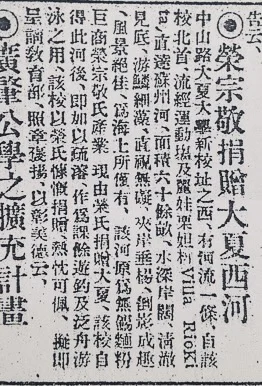 告云、
◉榮宗敬捐贈大夏西河
中山路大夏大學新校址之西、有河流一條、自該
校北首、流經運動塲及麗娃栗妲村Villa RioRi
ta,直達蘇州河、面積六十餘畝、水深岸闊、清澈
見底、游鱗細藻、直視無礙、夾岸垂楊、倒影成趣
、風景絕佳、爲海上所僅有、該河原爲無錫麵粉
巨商榮宗敬氏產業、現由榮氏捐贈大夏、該校自
得此河後、即加以疏濬、作爲課餘遊釣及泛舟游
泳之用、該校以榮氏慷慨捐贈、熱忱可佩、擬即
呈請教育部、照章褒揚、以彰美德云、
◉廣肇公學之擴充計畫